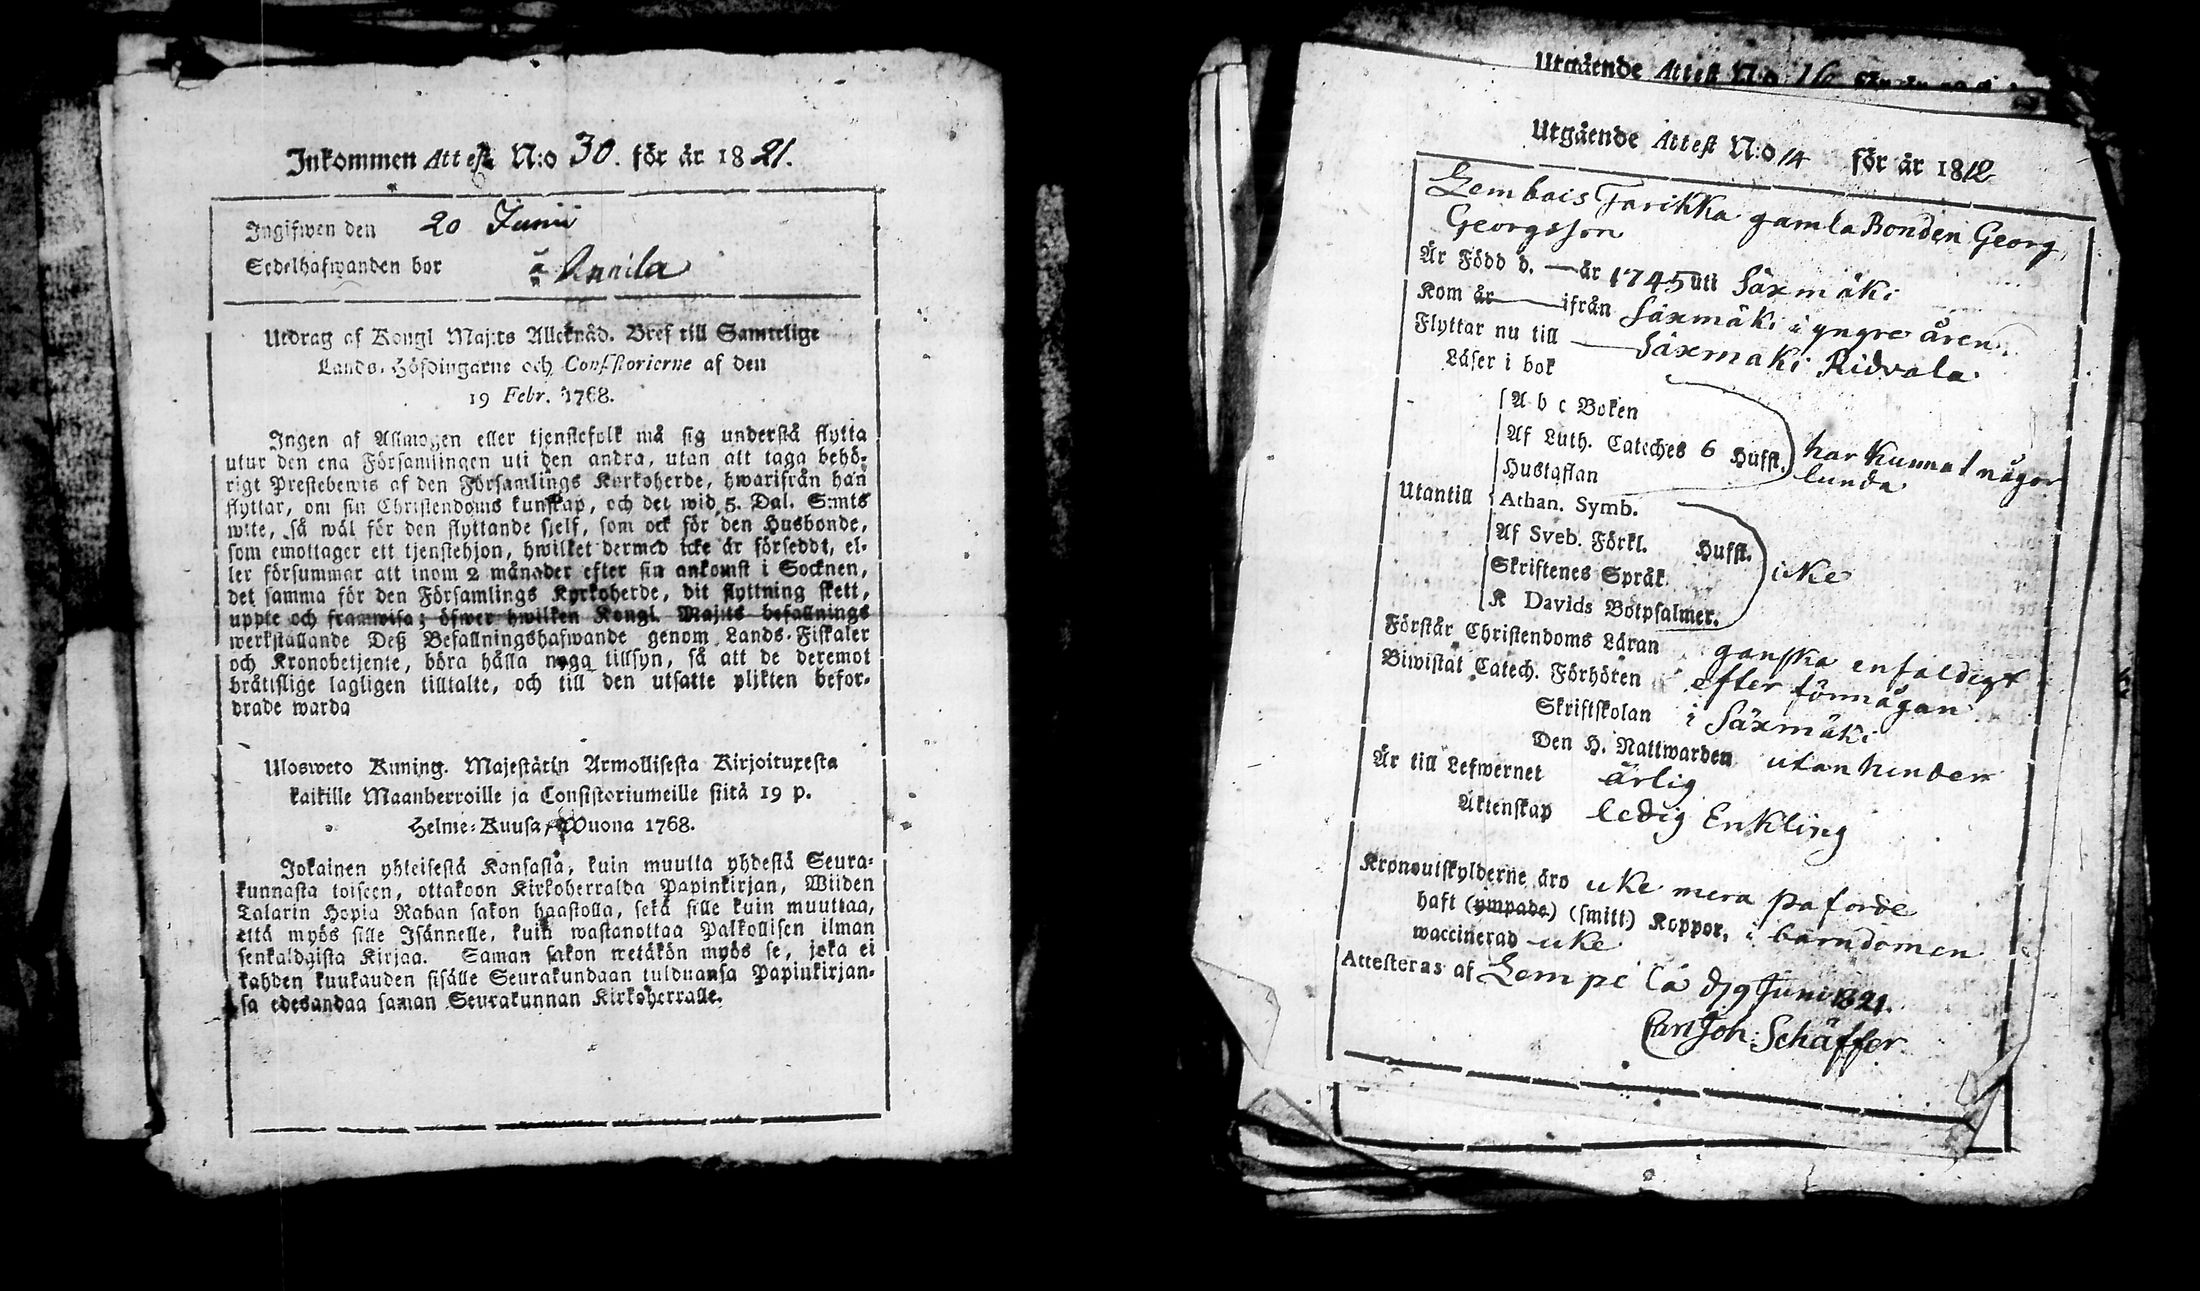 Inkommen Attest N:o 30. för år 1821.
Ingifwen den 20 Junii
Sedelhafwanden bor å Annila
Utdrag af Kongl Maj:ts Allernåd. Bref till Samtelige
Lands-Höfdingarne och Consistorierne af den
19 Febr. 1768.
Ingen af Allmogen eller tjenstefolk må sig understå flytta
utur den ena Församlingen uti den andra, utan att taga behö-
rigt Prestebewis af den Församlings Kyrkoherde, hwarifrån han
flyttar, om sin Christendoms kunskap, och det wid 5. Dal. S:mts
wite, så wäl för den flyttande sjelf, som ock för den Husbonde,
som emottager ett tjenstehjon, hwilket dermed icke är försedt, el-
ler försummar att inom 2 månader efter sin ankomst i Socknen,
det samma för den Församlings Kyrkoherde, dit flyttning skett,
uppte och framwisa; öfwer hwilken Kongl. Maj:ts befallnings
werkställande Deß Befallningshafwande genom Lands-Fiskaler
och Kronobetjente, böra hålla noga tillsyn, så att de deremot
bråttslige lagligen tilltalte, och till den utsatte plikten befor-
drade warda
Uloswető Kuning. Majestätin Armollisesta Kirjoituxesta
kaikille Maanherroille ja Consistoriumeille siitä 19 p.
Helme-Kuusa, Wuona 1768.
Jokainen yhteisestä Kansasta, kuin muutta yhdestä Seura-
kunnasta toiseen, ottakoon Kirkoherralda Papinkirjan, Wiiden
Talarin Hopia Rahan sakon haastolla, sekä sille kuin muuttaa,
että myös sille Isännelle, kuin wastanottaa Palkollisen ilman
senkaldaista Kirjaa. Saman sakon wetäkön myös se, joka ei
kahden kuukauden sisälle Seurakundaan tulduansa Papinkirjan-
sa edesandaa saman Seurakunnan Kirkoherralle.
Utgående Attest N:o 16 för år
Utgående Attest N:o 14 för år 1812
Lembois Farikka gamla Bonden Georg
Georgsson
Är Född d. — år 1745 uti Säxmäki
Kom år — ifrån Säxmäki i yngre åren.
Flyttar nu till — Säxmäki Ridvala
Läser i bok
A b c Boken
Af Luth. Cateches 6 Hufst. har kunnat någor
Hustaflan lunda
Utantill Athan. Symb.
Af Sveb. Förkl. Hufst.
Skriftenes Språk icke
K Davids Botpsalmer.
Förstår Christendoms Läran ganska enfaldigt
Biwistat Catech. Förhören efter förmågan
Skriftskolan i Säxmäki
Den H. Nattwarden utan hinder
Är till Lefwernet ärlig
Äktenskap ledig Enkling
Kronoutskylderne äro icke mera påförde
haft (ympade) (smitt) Koppor, i barndomen
waccinerad icke
Attesteras af Lempelä d 19 Junii 1821.
Carl Joh. Schäffer